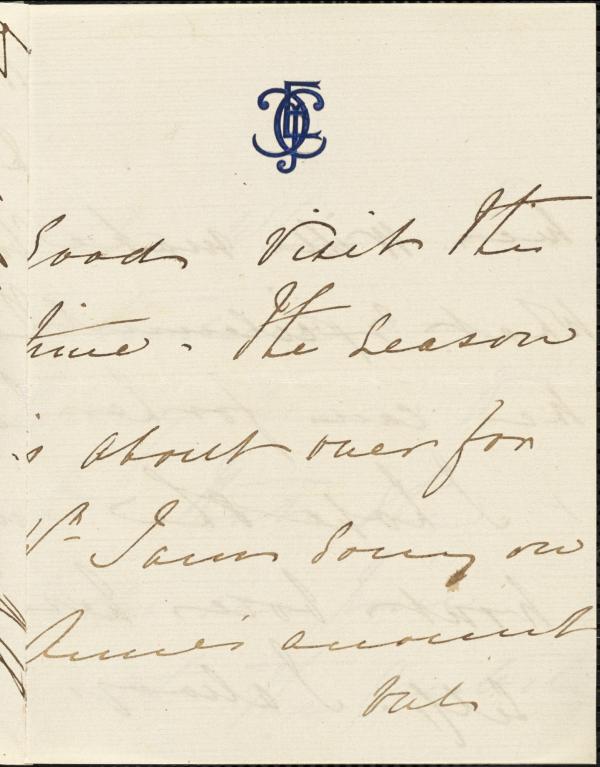 Good visit this
time. The Season
is about over for
Sr James Sorry on
Annie's account
but